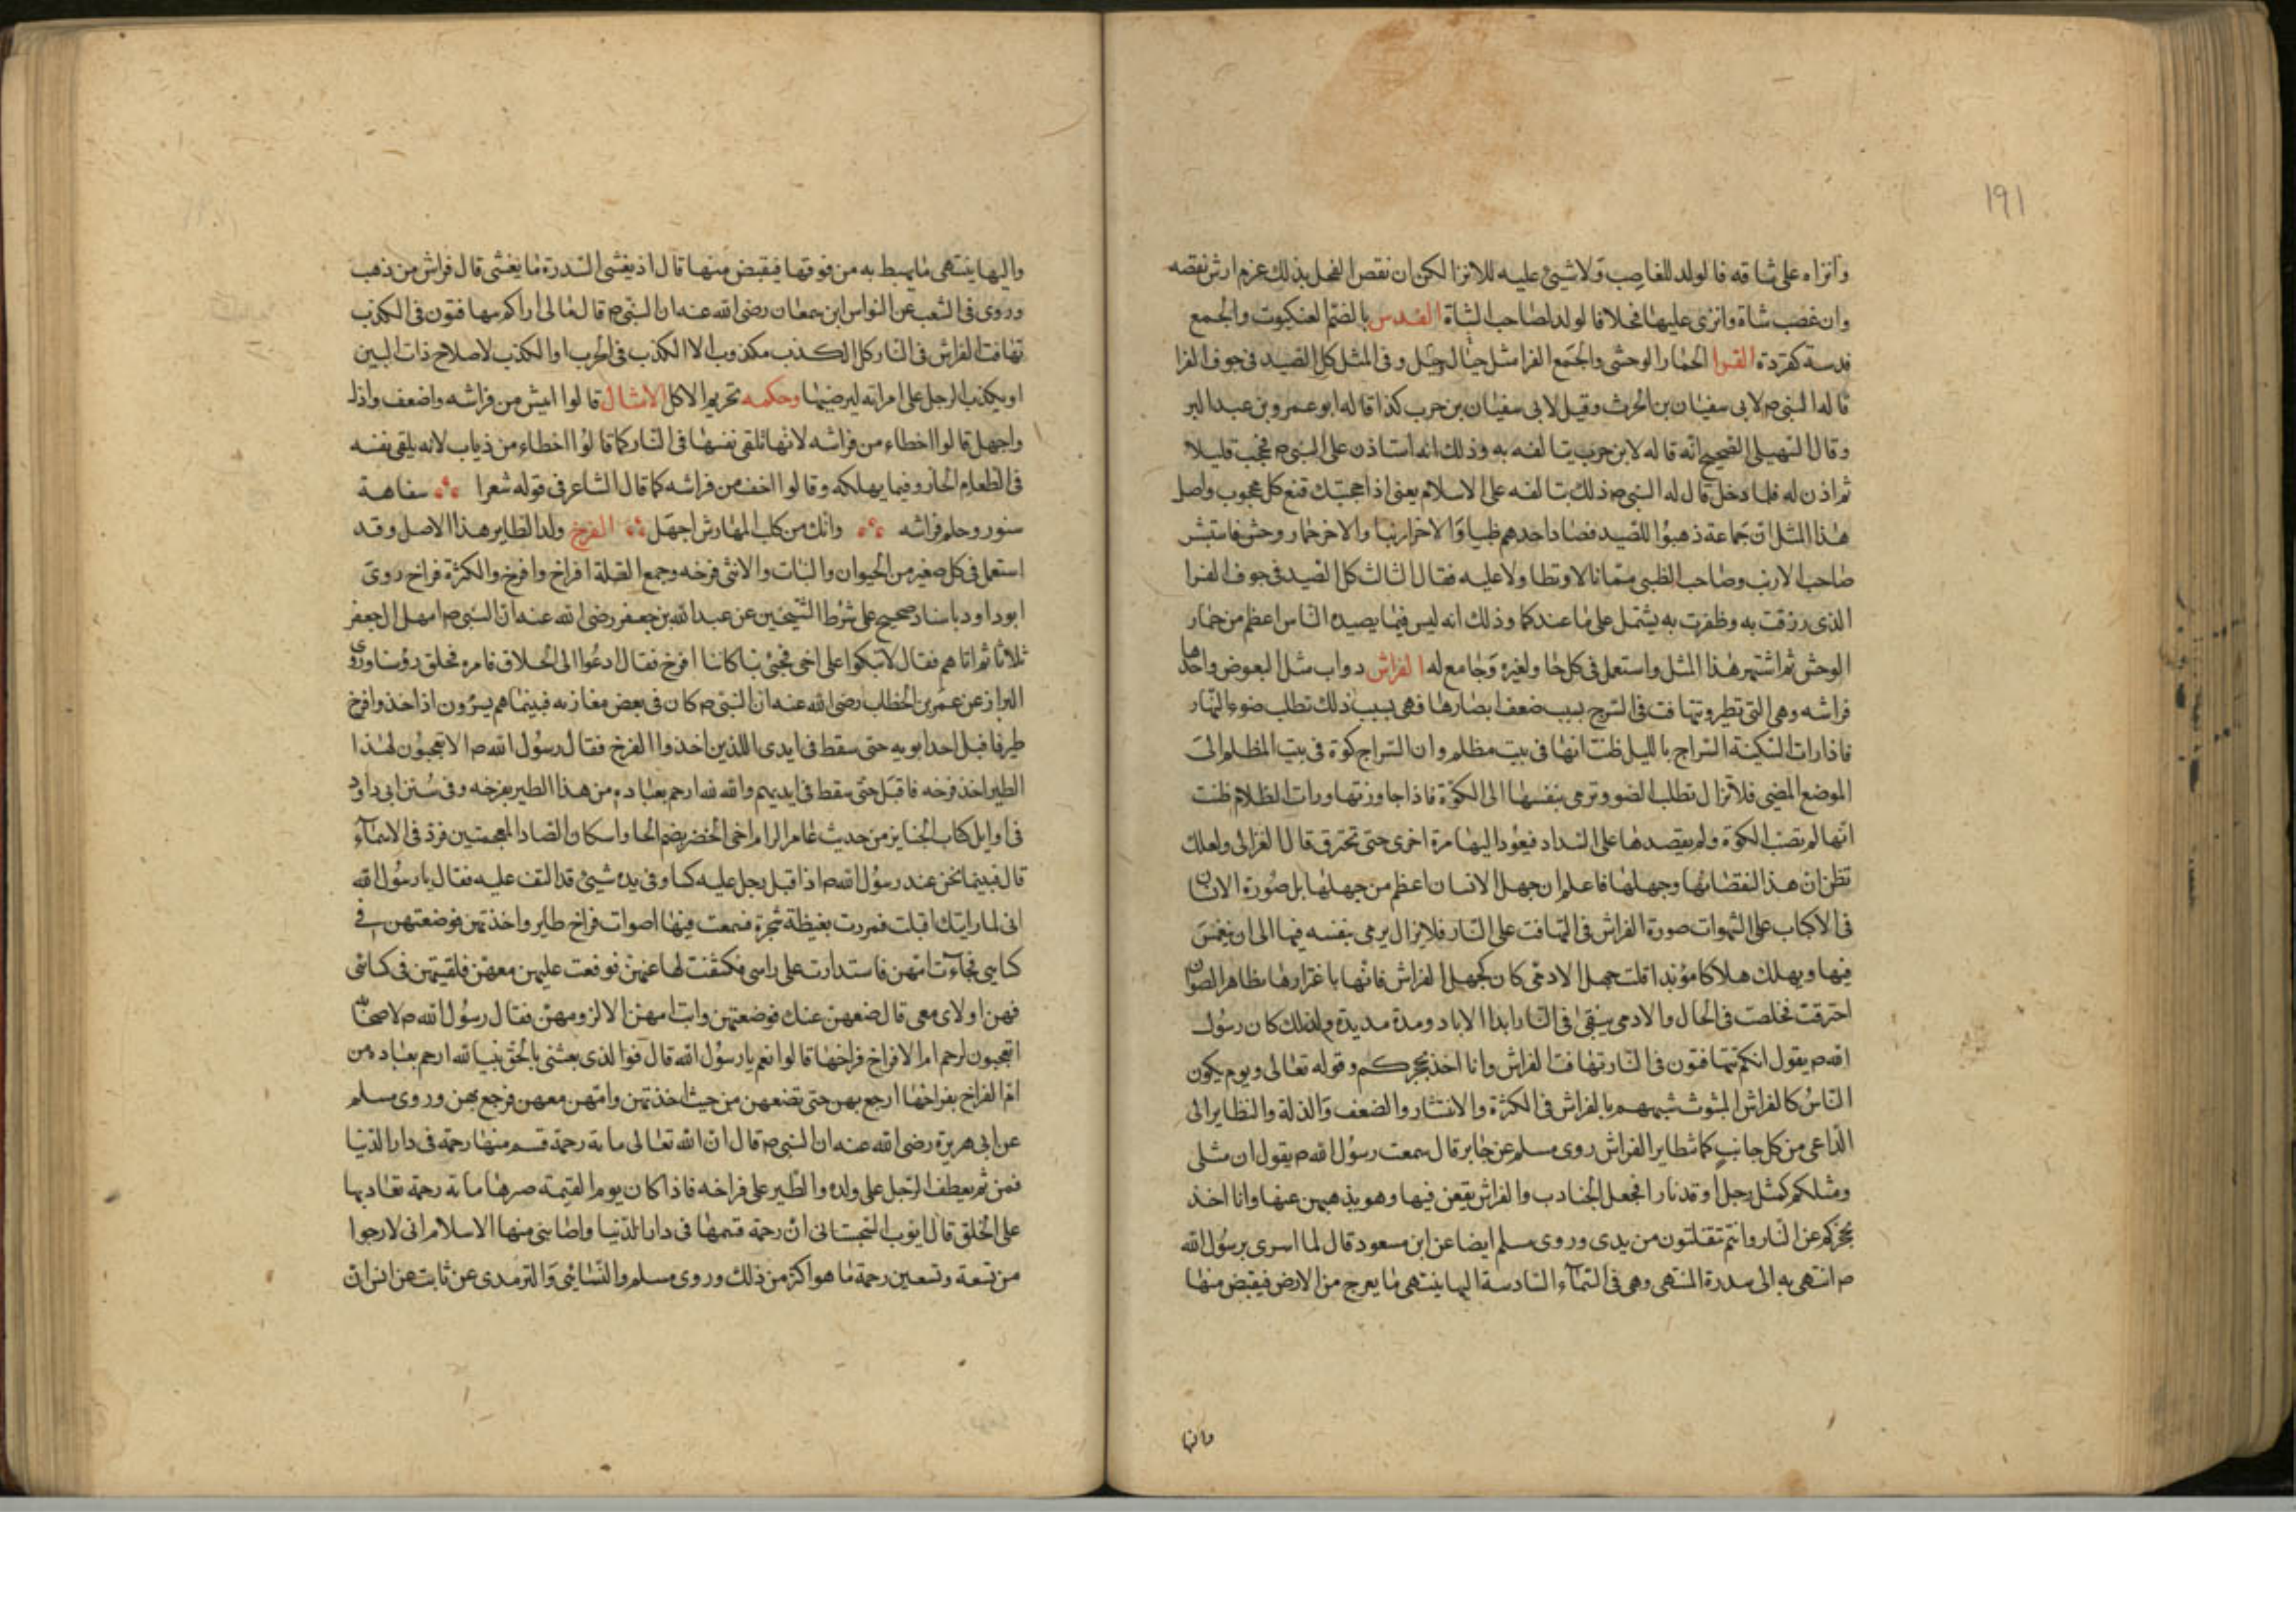 ١٩١
وانزاه على شاته فالولد للغاصب ولا شيئ عليه للانزا لكن ان نقص الفحل بذلك غرم ارش نقصه
وان غصب شاة وانزى عليها فحلا فالولد لصاحب الشاة الفدس بالضم العنكبوت والجمع
فدسة كقردة الفرا الحمار الوحشى والجمع الفرا مثل جبال جبل وفى المثل كل الصيد فى جوف الفرا
قاله النبى ص لابى سفيان بن الحرث وقيل لابى سفيان بن حرب كذا قاله ابو عمرو بن عبد البر
وقال السهيلى الصحيح انه قاله لابن حرب يتالفه به وذلك انه استاذن على النبى ص فحجب قليلا
ثم اذن له فلما دخل قال له النبى ص ذلك يتالفه على الاسلام يعنى اذا حجبتك قنع كل محجوب واصل
هذا المثل ان جماعة ذهبوا للصيد فصاد احدهم ظبيا والاخر ارنبا والاخر حمار وحش فاستبشر
صاحب الارنب وصاحب الظبى بما نالا وتطاولا عليه فقال الثالث كل الصيد فى جوف الفرا
الذى رزقت به وظفرت به يشتمل على ما عندكما وذلك انه ليس فيما يصيده الناس اعظم من حمار
الوحش ثم اشتهر هذا المثل واستعمل فى كل حاو لغيره وجامع له الفراش دواب مثل البعوض واحدها
فراشه وهى التى تطير وتتهافت فى السرج بسبب ضعف ابصارها فهى بسبب ذلك تطلب ضوء النهار
فاذا رات المسكينة السراج بالليل ظنت انها فى بيت مظلم وان السراج كوة فى بيت المظلم الى
الموضع المضى فلا تزال تطلب الضو وترمى بنفسها الى الكوة فاذا جاوزتها ورات الظلام ظنت
انها لم تصب الكوة ولم يقصدها على السداد فيعود اليها مرة اخرى حتى تحترق قال الغزالى ولعلك
تظن ان هذا لنقصانها وجهلها فاعلم ان جهل الانسان اعظم من جهلها بل صورة الانسان
فى الاكباب على الشهوات صورة الفراش فى التهافت على النار فلا يزال يرمى بنفسه فيها الى ان ينغمس
فيها ويهلك هلاكا مؤبدا فليت جهل الادمى كان كجهل الفراش فانها باغترارها بظاهر الضوان
احترقت تخلصت فى الحال والادمى يبقى فى النار ابد الاباد ومدة مديدة ولذلك كان رسول
الله ص يقول انكم تتهافتون فى النار تهافت الفراش وانا اخذ بحجزكم وقوله تعالى ويوم يكون
الناس كالفراش المبثوث شبههم بالفراش فى الكثرة والانتشار والضعف والذلة والتطاير الى
الداعى من كل جانب كما تطاير الفراش روى مسلم عن جابر قال سمعت رسول الله ص يقول ان مثلى
ومثلكم كمثل رجل اوقد نارا فجعل الجنادب والفراش يقعن فيها وهو يذبهن عنها وانا اخذ
بحجزكم عن النار وانتم تفلتون من يدى وروى مسلم ايضا عن ابن مسعود قال لما اسرى برسول الله
ص انتهى به الى سدرة المنتهى وهى فى السمآء السادسة اليها ينتهى ما يعرج من الارض فيقبض منها
واليها
واليها ينتهى ما يهبط به من فوقها فيقبض منها قال اذ يغشى السدرة ما يغشى قال فراش من ذهب
وروى فى الشعب عن النواس ابن سمعان رضى الله عنه ان النبى ص قال مالى اراكم تهافتون فى الكذب
تهافت الفراش فى النار كل الكذب مكذوب الا الكذب فى الحرب او الكذب لاصلاح ذات البين
او يكذب الرجل على امراته ليرضيها وحكمه تحريم الاكل الامثال قالوا اطيش من فراشه واضعف واذل
واجهل قالوا اخطاء من فراشه لانها تلقى نفسها فى النار كما قالوا اخطاء من ذباب لانه يلقى نفسه
فى الطعام الحار وفيما يهلكه وقالوا اخف من فراشه كما قال الشاعر فى قوله شعرا سفاهة
سنور وحلم فراشه وانك من كلب المهارش اجهل الفرخ ولد الطاير هذا الاصل وقد
استعمل فى كل صغير من الحيوان والنبات والانثى فرخه وجمع القلة افراخ وافرخ والكثرة فراخ روى
ابو داود باسناد صحيح على شرط الشيخين عن عبد الله بن جعفر رضى الله عنه ان النبى ص امهل ال جعفر
ثلاثا ثم اتاهم فقال لا تبكوا على اخى فجيئ بنا كاننا افرخ فقال ادعوا الى الحلاق فامره فحلق رؤسنا وروى
البزاز عن عمر بن الخطاب رضى الله عنه ان النبى ص كان فى بعض مغازيه فبينما هم يسيرون اذ اخذوا فرخ
طير فاقبل احد ابويه حتى سقط فى ايدى اللذين اخذوا الفرخ فقال رسول الله ص الا تعجبون لهذا
الطير اخذ فرخه فاقبل حتى سقط فى ايديهم والله لله ارحم بعباده من هذا الطير بفرخه وفى سنن ابى داود
فى اوايل كتاب الجنايز من حديث عامر الرام اخى الخضر بضم الخا واسكان الضاد المعجمتين فرد فى الاسمآء
قال فبينما نحن عند رسول الله ص اذ اقبل رجل عليه كسا وفى يده شيئ قد التف عليه فقال يا رسول الله
انى لما رايتك اقبلت فمررت بغيظة شجرة فسمعت فيها اصوات فراخ طاير واخذتهن فوضعتهن فى
كسايى فجاءت امهن فاستدارت على راسى فكشفت لها عنهن فوقعت عليهن معهن فلففتهن فى كسائى
فهن اولاى معى قال ضعهن عنك فوضعتهن وابت امهن الا لزومهن فقال رسول الله ص لاصحابه
اتعجبون لرحم ام الافراخ فراخها قالوا نعم يا رسول الله قال فوالذى بعثنى بالحق نبيا لله ارحم بعباده من
ام الفراخ بفراخها ارجع بهن حتى تضعهن من حيث اخذتهن وامهن معهن فرجع بهن وروى مسلم
عن ابى هريرة رضى الله عنه ان النبى ص قال ان الله تعالى مائة رحمة قسم منها رحمة فى دار الدنيا
فمن ثم يعطف الرجل على ولده والطير على فراخه فاذا كان يوم القيمة صيرها مائة رحمة تعاد بها
على الخلق قال ايوب السجستانى ان رحمة قسمها فى دار الدنيا واصابنى منها الاسلام انى لارجوا
من تسعة وتسعين رحمة ما هو اكثر من ذلك وروى مسلم والنسائى والترمذى عن ثابت عن انس ان